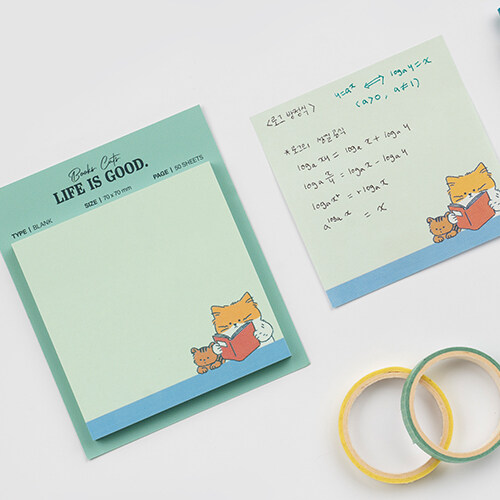 Books Cats
LIFE IS GOOD.
TYPE | BLANK
SIZE | 70 x 70 mm
PAGE | 50 SHEETS
<로그 방정식>
y=aˣ ⟺ logₐy=x
(a>0, a≠1)
*로그의 성질 공식
logₐxy = logₐx + logₐy
logₐx/y = logₐx - logₐy
logₐxʳ = rlogₐx
a^logₐx = x